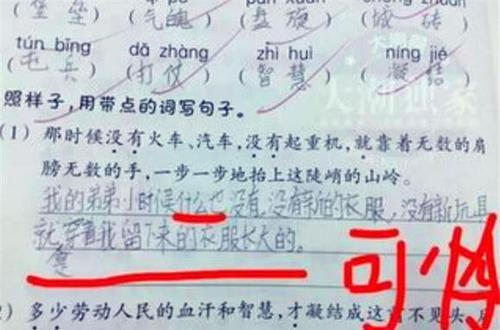 (堡垒) (气魄) (盘旋) (城砖)
tún bīng dǎ zhàng zhì huì níng jié
(屯兵) (打仗) (智慧) (凝结)
照样子，用带点的词写句子。
(1) 那时候没有火车、汽车，没有起重机，就靠着无数的肩
膀无数的手，一步一步地抬上这陡峭的山岭。
我的弟弟小时候什么也没有，没有新的衣服，没有新玩具
就穿着我留下来的衣服长大的。
可怜
2) 多少劳动人民的血汗和智慧，才凝结成这前不见头，后